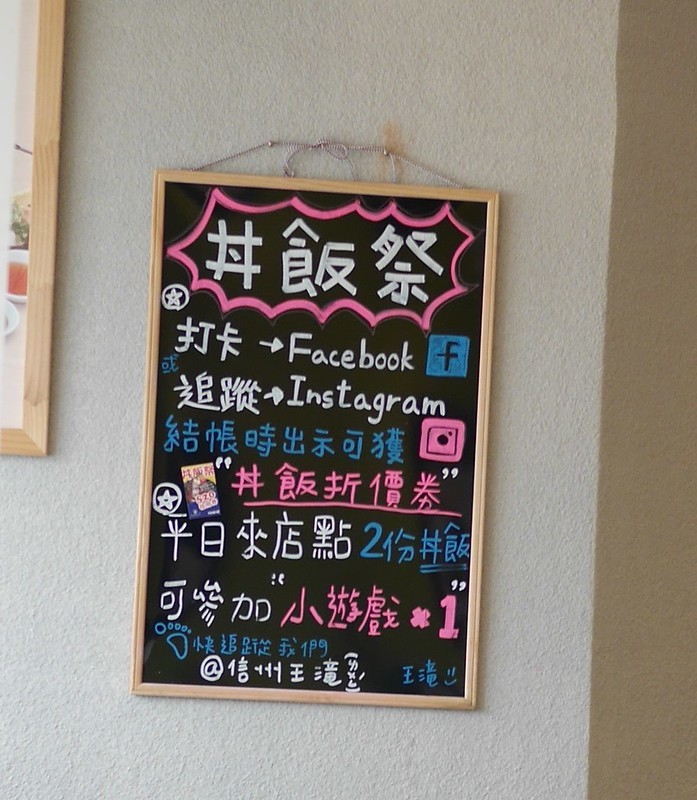 丼飯祭
打卡→Facebook f
或
追蹤→Instagram
結帳時出示可獲
丼飯祭
“丼飯折價券”
平日來店點2份丼飯
可參加“小遊戲*1”
快追蹤我們
@信州王滝(ㄕㄨㄤ)
王滝